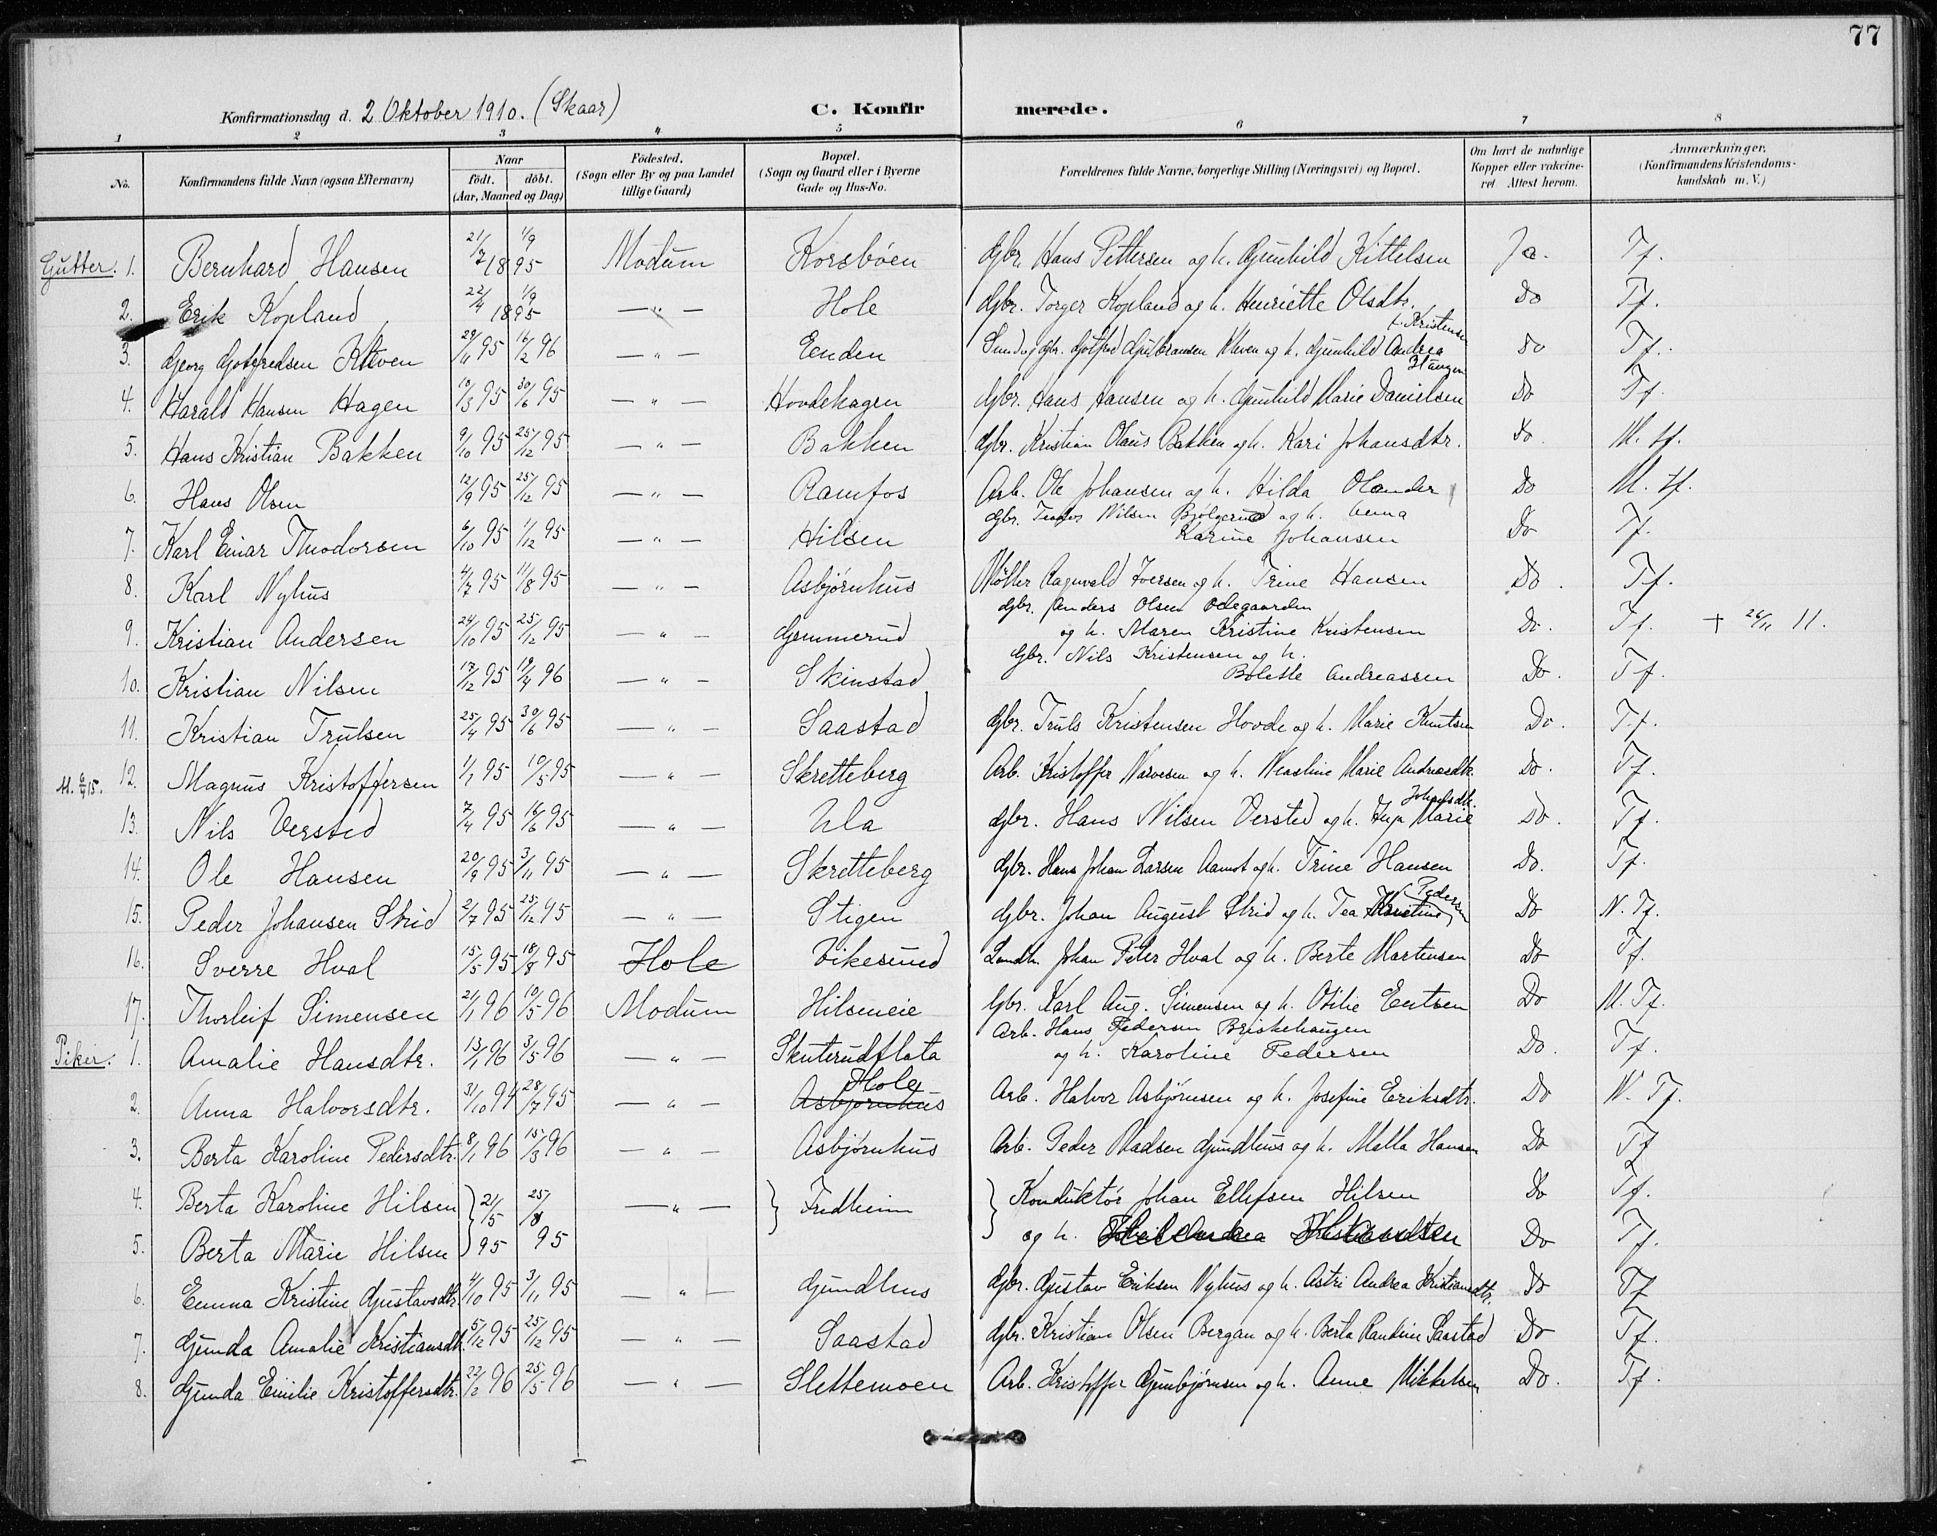 77
Konfirmationsdag d. 2 Oktober 1910. (Skaar) C. Konfirmerede.
1 2 3 4 5 6 7 8
No. Konfirmandens fulde Navn (ogsaa Efternavn) Naar födt. döbt. (Aar, Maaned og Dag) Födested. (Sogn eller By og paa Landet tillige Gaard.) Bopæl. (Sogn og Gaard eller i Byerne Gade og Hus-No. Forældrenes fulde Navne, borgerlige Stilling (Næringsvei) og Bopæl. Om havt de naturlige Kopper eller vakcineret Attest herom. Anmærkninger. (Konfirmandens Kristendomskundskab m. V.)
Gutter. 1. Bernhard Hansen 21/7 1/9 1895 Modum Korsböen Gbr. Hans Pettersen og h. Gunhild Kittelsen Ja. Tf.
2. Erik Kopland 22/4 1/9 1895 — " — Hole Gbr. Torger Kopland og h. Henriette Olsdtr. Do Tf.
3. Georg Gotfredsen Kleven 29/11 95 16/2 96 — " — Eenden Gbr. Gotfred Gulbransen Kleven og h. Gunhild Andrea Kristensen Haugen Do Tf.
4. Harald Hansen Hagen 10/3 95 30/6 95 — " — Hovdehagen Gbr. Hans Hansen og h. Gunhild Marie Danielsen Do Tf.
5. Hans Kristian Bakken 9/10 95 25/12 95 — " — Bakken Gbr. Kristian Olaus Bakken og h. Kari Johansdtr. Do. M. tf.
6. Hans Olsen 12/9 95 25/12 95 — " — Ramfos Arb. Ole Johansen og h. Hilda Olander Do M. tf.
7. Karl Einar Theodorsen 6/10 95 1/12 95 — " — Hilsen Gbr. Nilsen Bjölgerud og h. Anna Karine Johansen Do Tf.
8. Karl Nyhus 4/7 95 11/8 95 — " — Asbjörnhus Möller Ragnvald Iversen og h. Trine Hansen Do. Tf.
9. Kristian Andersen 24/10 95 25/12 95 — " — Gommerud Gbr. Anders Olsen Ödegaarden og h. Maren Kristine Kristensen Do. Tf. + 26/11 11.
10. Kristian Nilsen 17/12 95 19/4 96 — " — Skinstad Gbr. Nils Kristensen og h. Bolette Andreassen Do. Tf.
11. Kristian Trulsen 25/4 95 30/6 95 — " — Saastad Gbr. Truls Kristensen Hovde og h. Marie Knutsen Do. Tf.
M. 6/4 15. 12. Magnus Kristoffersen 1/1 95 10/5 95 — " — Skretteberg Arb. Kristoffer Narvesen og h. Marie Andreasdtr. Do. Tf.
13. Nils Versted 7/4 95 16/6 95 — " — Ula Gbr. Hans Nilsen Versted og h. Marie Do. Tf.
14. Ole Hansen 20/9 95 3/11 95 — " — Skretteberg Gbr. Hans Johan Larsen Aamot og h. Trine Hansen Do. Tf.
15. Peder Johansen Strid 2/7 95 25/12 95 — " — Stigen Gbr. Johan August Strid og h. Tea Kristine Pedersen Do N. Tf.
16. Sverre Hval 15/5 95 18/8 95 Hole Vikesund Landh. Johan Peter Hval og h. Berte Martensen Do Tf.
17. Thorleif Simensen 21/1 96 10/5 96 Modum Hilseneie Gbr. Karl Aug. Simensen og h. Otilie Eentsen Do M. Tf.
Piker. 1. Amalie Hansdtr. 13/1 96 3/5 96 — " — Skuterudflata Arb. Hans Pedersen Briskehaugen og h. Karoline Pedersen Do. Tf.
2. Anna Halvorsdtr. 31/10 94 28/7 95 — " — Asbjörnhus Hole Arb. Halvor Asbjörnsen og h. Josefine Eriksdtr. Do N. Tf.
3. Berta Karoline Pedersdtr. 8/1 96 15/3 96 — " — Asbjörnhus Arb. Peder Madsen Gundhus og h. Malla Hansen Do Tf
4. Berta Karoline Hilsen } 21/5 25/8 — " — } Fredheim } Konduktör Johan Ellefsen Hilsen Do Tf.
5. Berta Marie Hilsen 95 95 og h. Do Tf.
6. Emma Kristine Gustavsdtr. 4/10 95 3/11 95 — " — Gundhus Gbr. Gustav Eriksen Nyhus og h. Astri Andrea Kristiansdtr. Do Tf
7. Gunda Amalie Kristiansdtr. 5/12 95 25/12 95 — " — Saastad Gbr. Kristian Olsen Bergan og h. Berta Randine Saastad Do Tf.
8. Gunda Emilie Kristoffersdtr. 22/2 96 25/5 96 — " — Slettemoen Arb. Kristoffer Gunbjörnsen og h. Anne Mikkelsen Do. Tf.